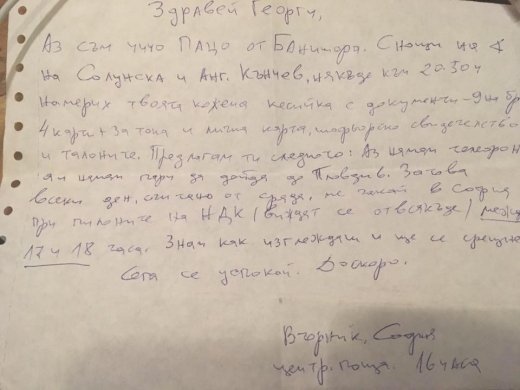 Здравей Георги,
Аз съм чичо Пацо от Банишора. Снощи на
на Солунска и Анг. Кънчев, някъде към 20.30ч
намерих твоята кожена кесийка с документи – 9 на бр
4 карти + за тока и лична карта, шофьорско свидетелство
и талоните. Предлагам ти следното: Аз нямам телефон
ни нямам пари да дойда до Пловдив. Затова
всеки ден, считано от сряда, ме чакай в София
при пилоните на НДК (виждат се отвсякъде) между
17 и 18 часа. Знам как изглеждаш и ще се срещнем
Сега се успокой. До скоро.
Вторник, София
центр. поща. 16 часа